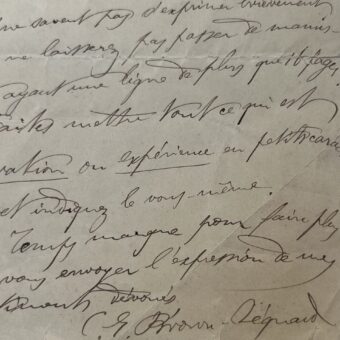 ne savent pas s'exprimer brièvement
ne laisserez pas passer de manus-
ayant une ligne de plus que 16 pages.
faites mettre tout ce qui est
ration ou expérience en petit cara
et indiquez le vous-même.
Temps manque pour faire plus
vous envoyer l'expression de mes
timents dévoués
C. E. Brown-Séquard